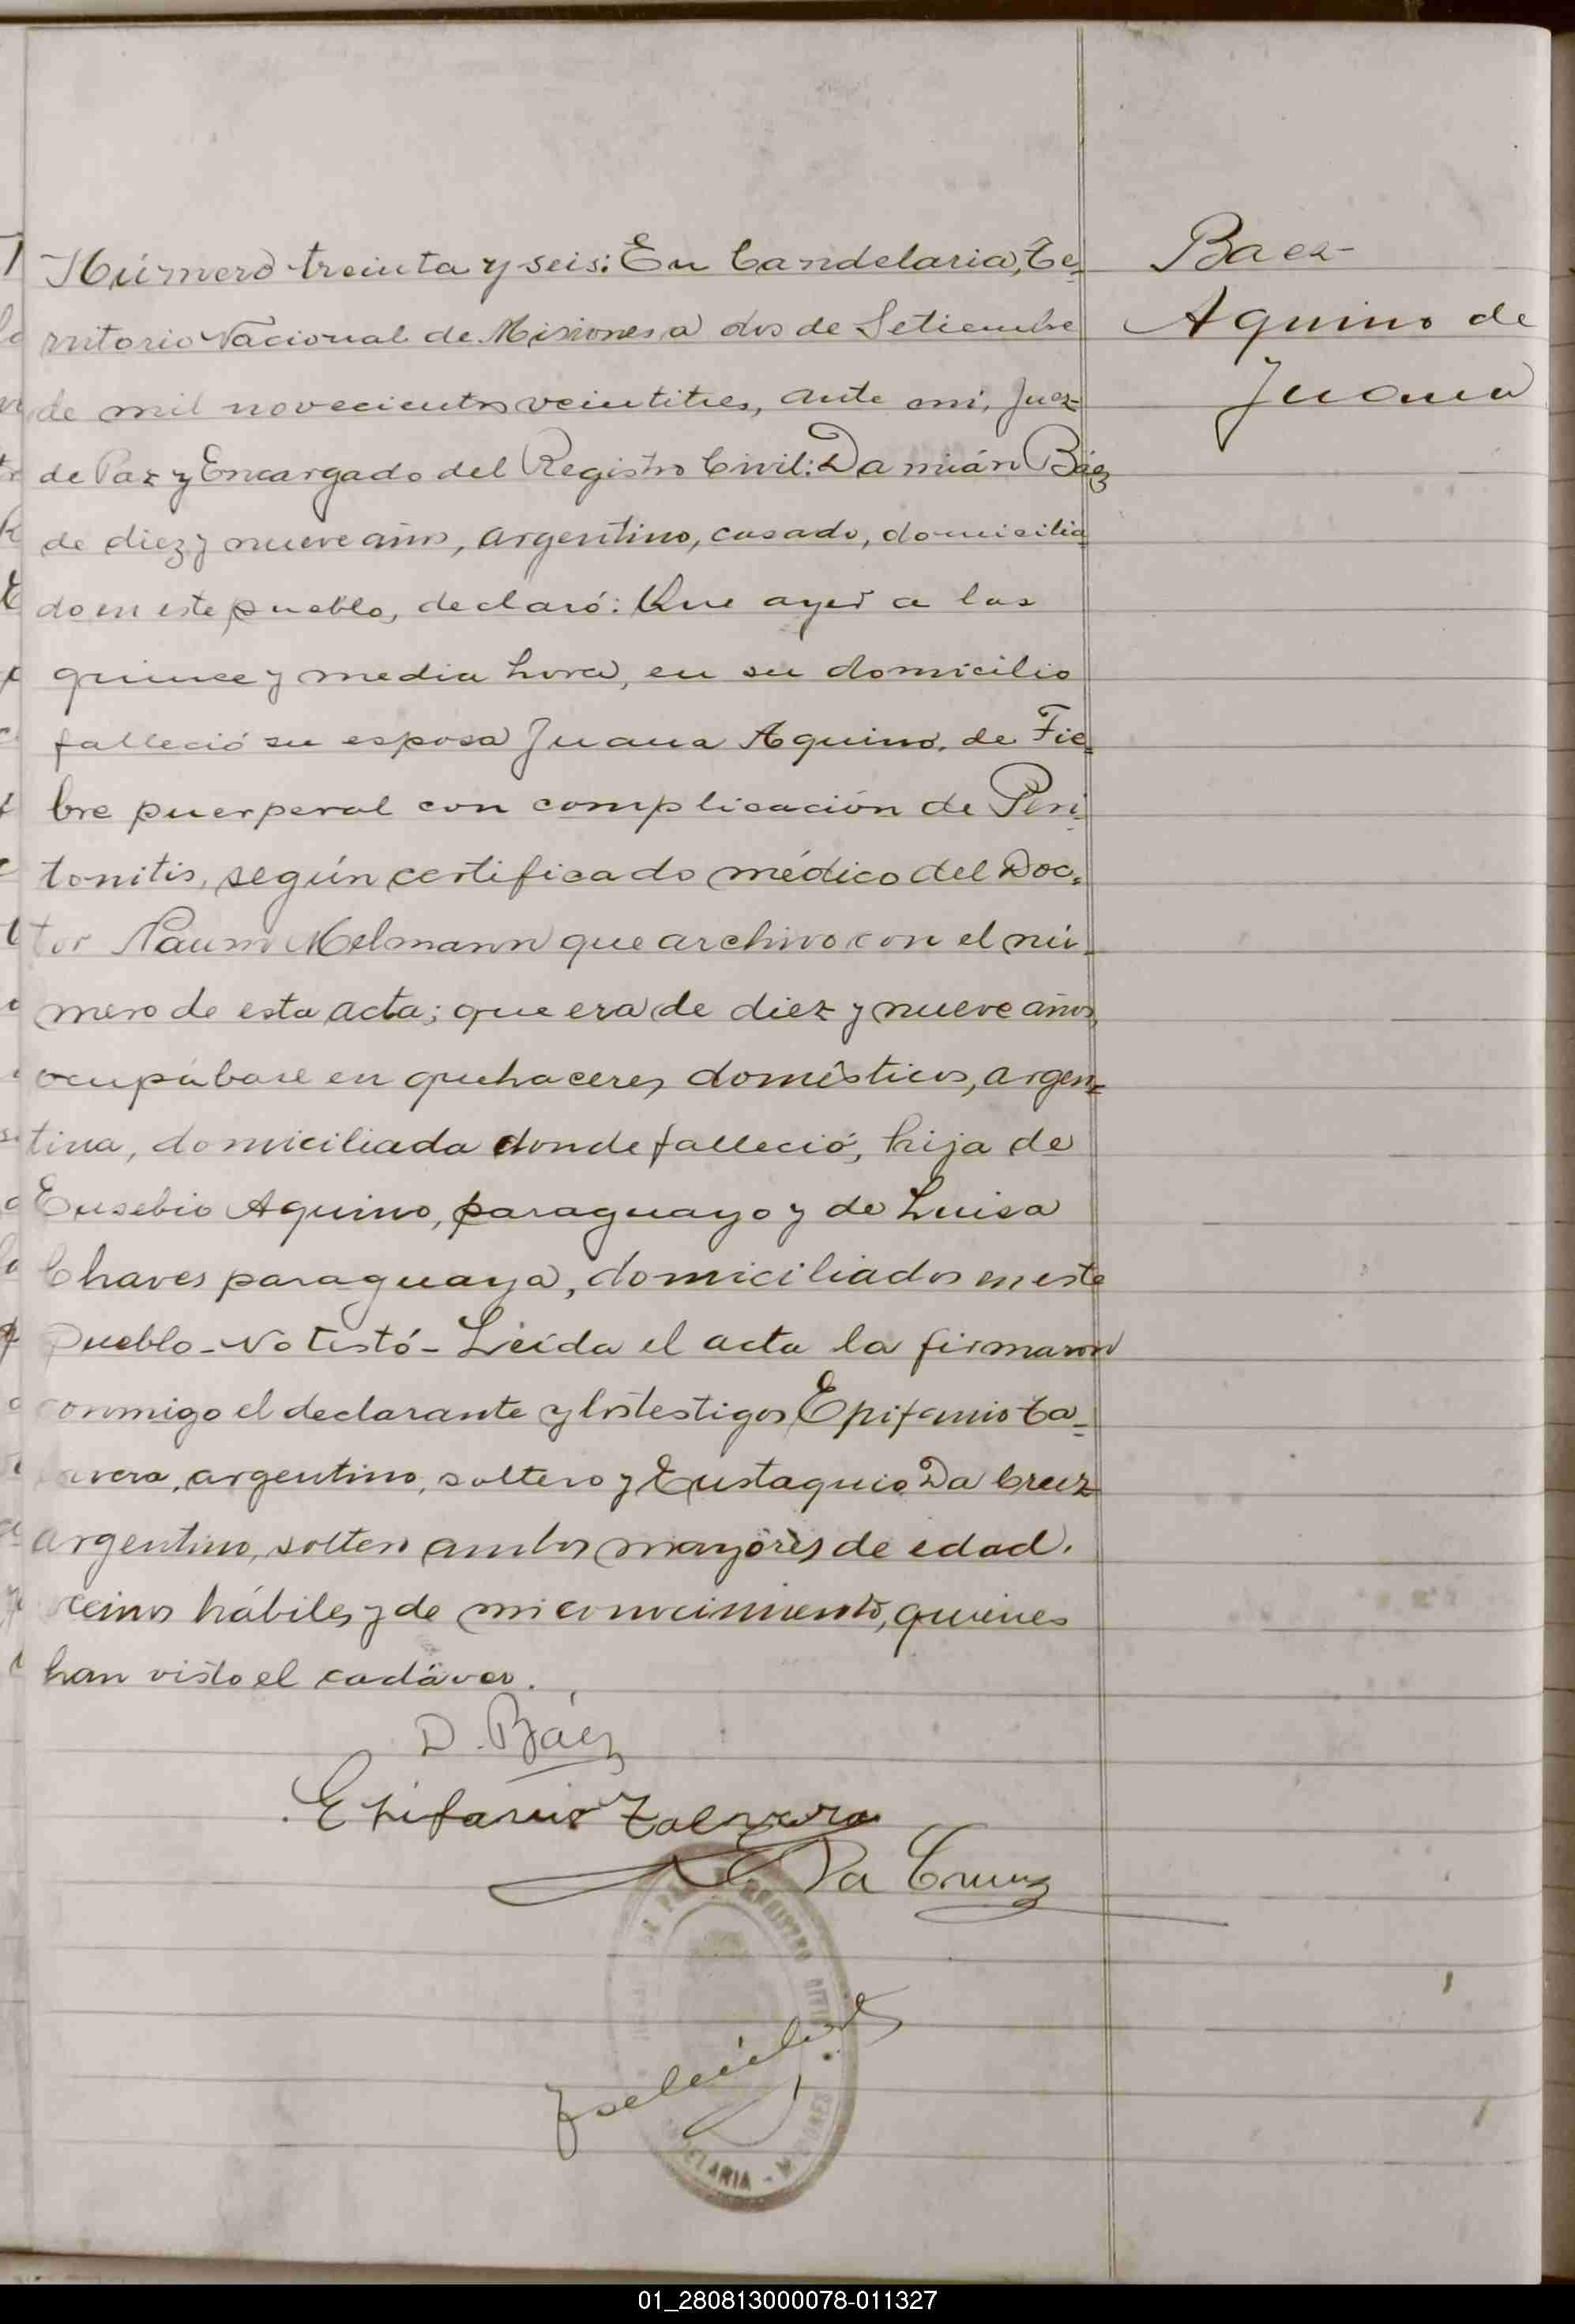 Número treinta y seis: En Candelaria, Te-
rritorio Nacional de Misiones a dos de Setiembre
de mil novecientos veintitres, ante mi, Juez
de Paz y Encargado del Registro Civil: Damián Báez
de diez y nueve años, argentino, casado, domicilia-
do en este pueblo, declaró: Que ayer a las
quince y media hora, en su domicilio
falleció su esposa Juana Aquino, de Fie-
bre puerperal con complicación de Peri-
tonitis, según certificado médico del Doc-
tor Naum Melmann que archivo con el nú-
mero de esta acta; que era de diez y nueve años,
ocupábase en quehaceres domésticos, argen-
tina, domiciliada donde falleció, hija de
Eusebio Aquino, paraguayo y de Luisa
Chaves paraguaya, domiciliados en este
pueblo - No testó - Leída el acta la firmaron
conmigo el declarante y los testigos Epifanio Ta-
lavera, argentino, soltero y Eustaquio Da Cruz
argentino, soltero ambos mayores de edad,
vecinos hábiles y de mi conocimiento, quienes
han visto el cadáver.
Baez
Aquino de
Juana
D. Báez
Epifanio Talavera
E. Da Cruz
REGISTRO CIVIL
CANDELARIA - MISIONES
01_280813000078-011327